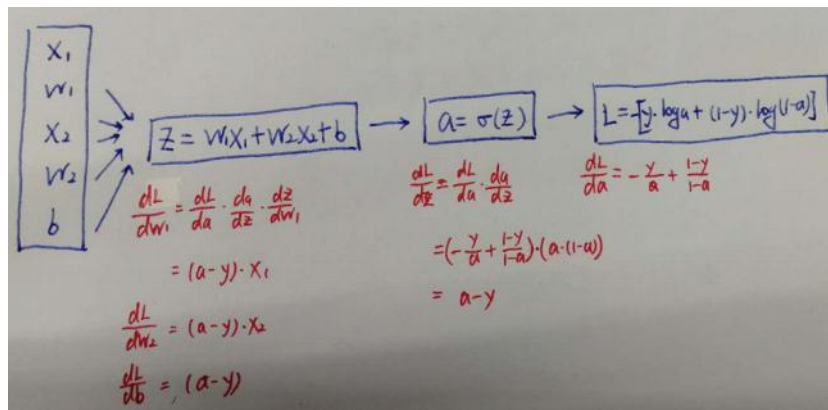 x₁
w₁
x₂
w₂
b
z = w₁x₁+w₂x₂+b
a = σ(z)
L=-[y·log a + (1-y)·log(1-a)]
dL/dw₁ = dL/da · da/dz · dz/dw₁
= (a-y)·x₁
dL/dw₂ = (a-y)·x₂
dL/db = (a-y)
dL/dz = dL/da · da/dz
=(-y/a + 1-y/1-a)·(a·(1-a))
= a-y
dL/da = -y/a + 1-y/1-a